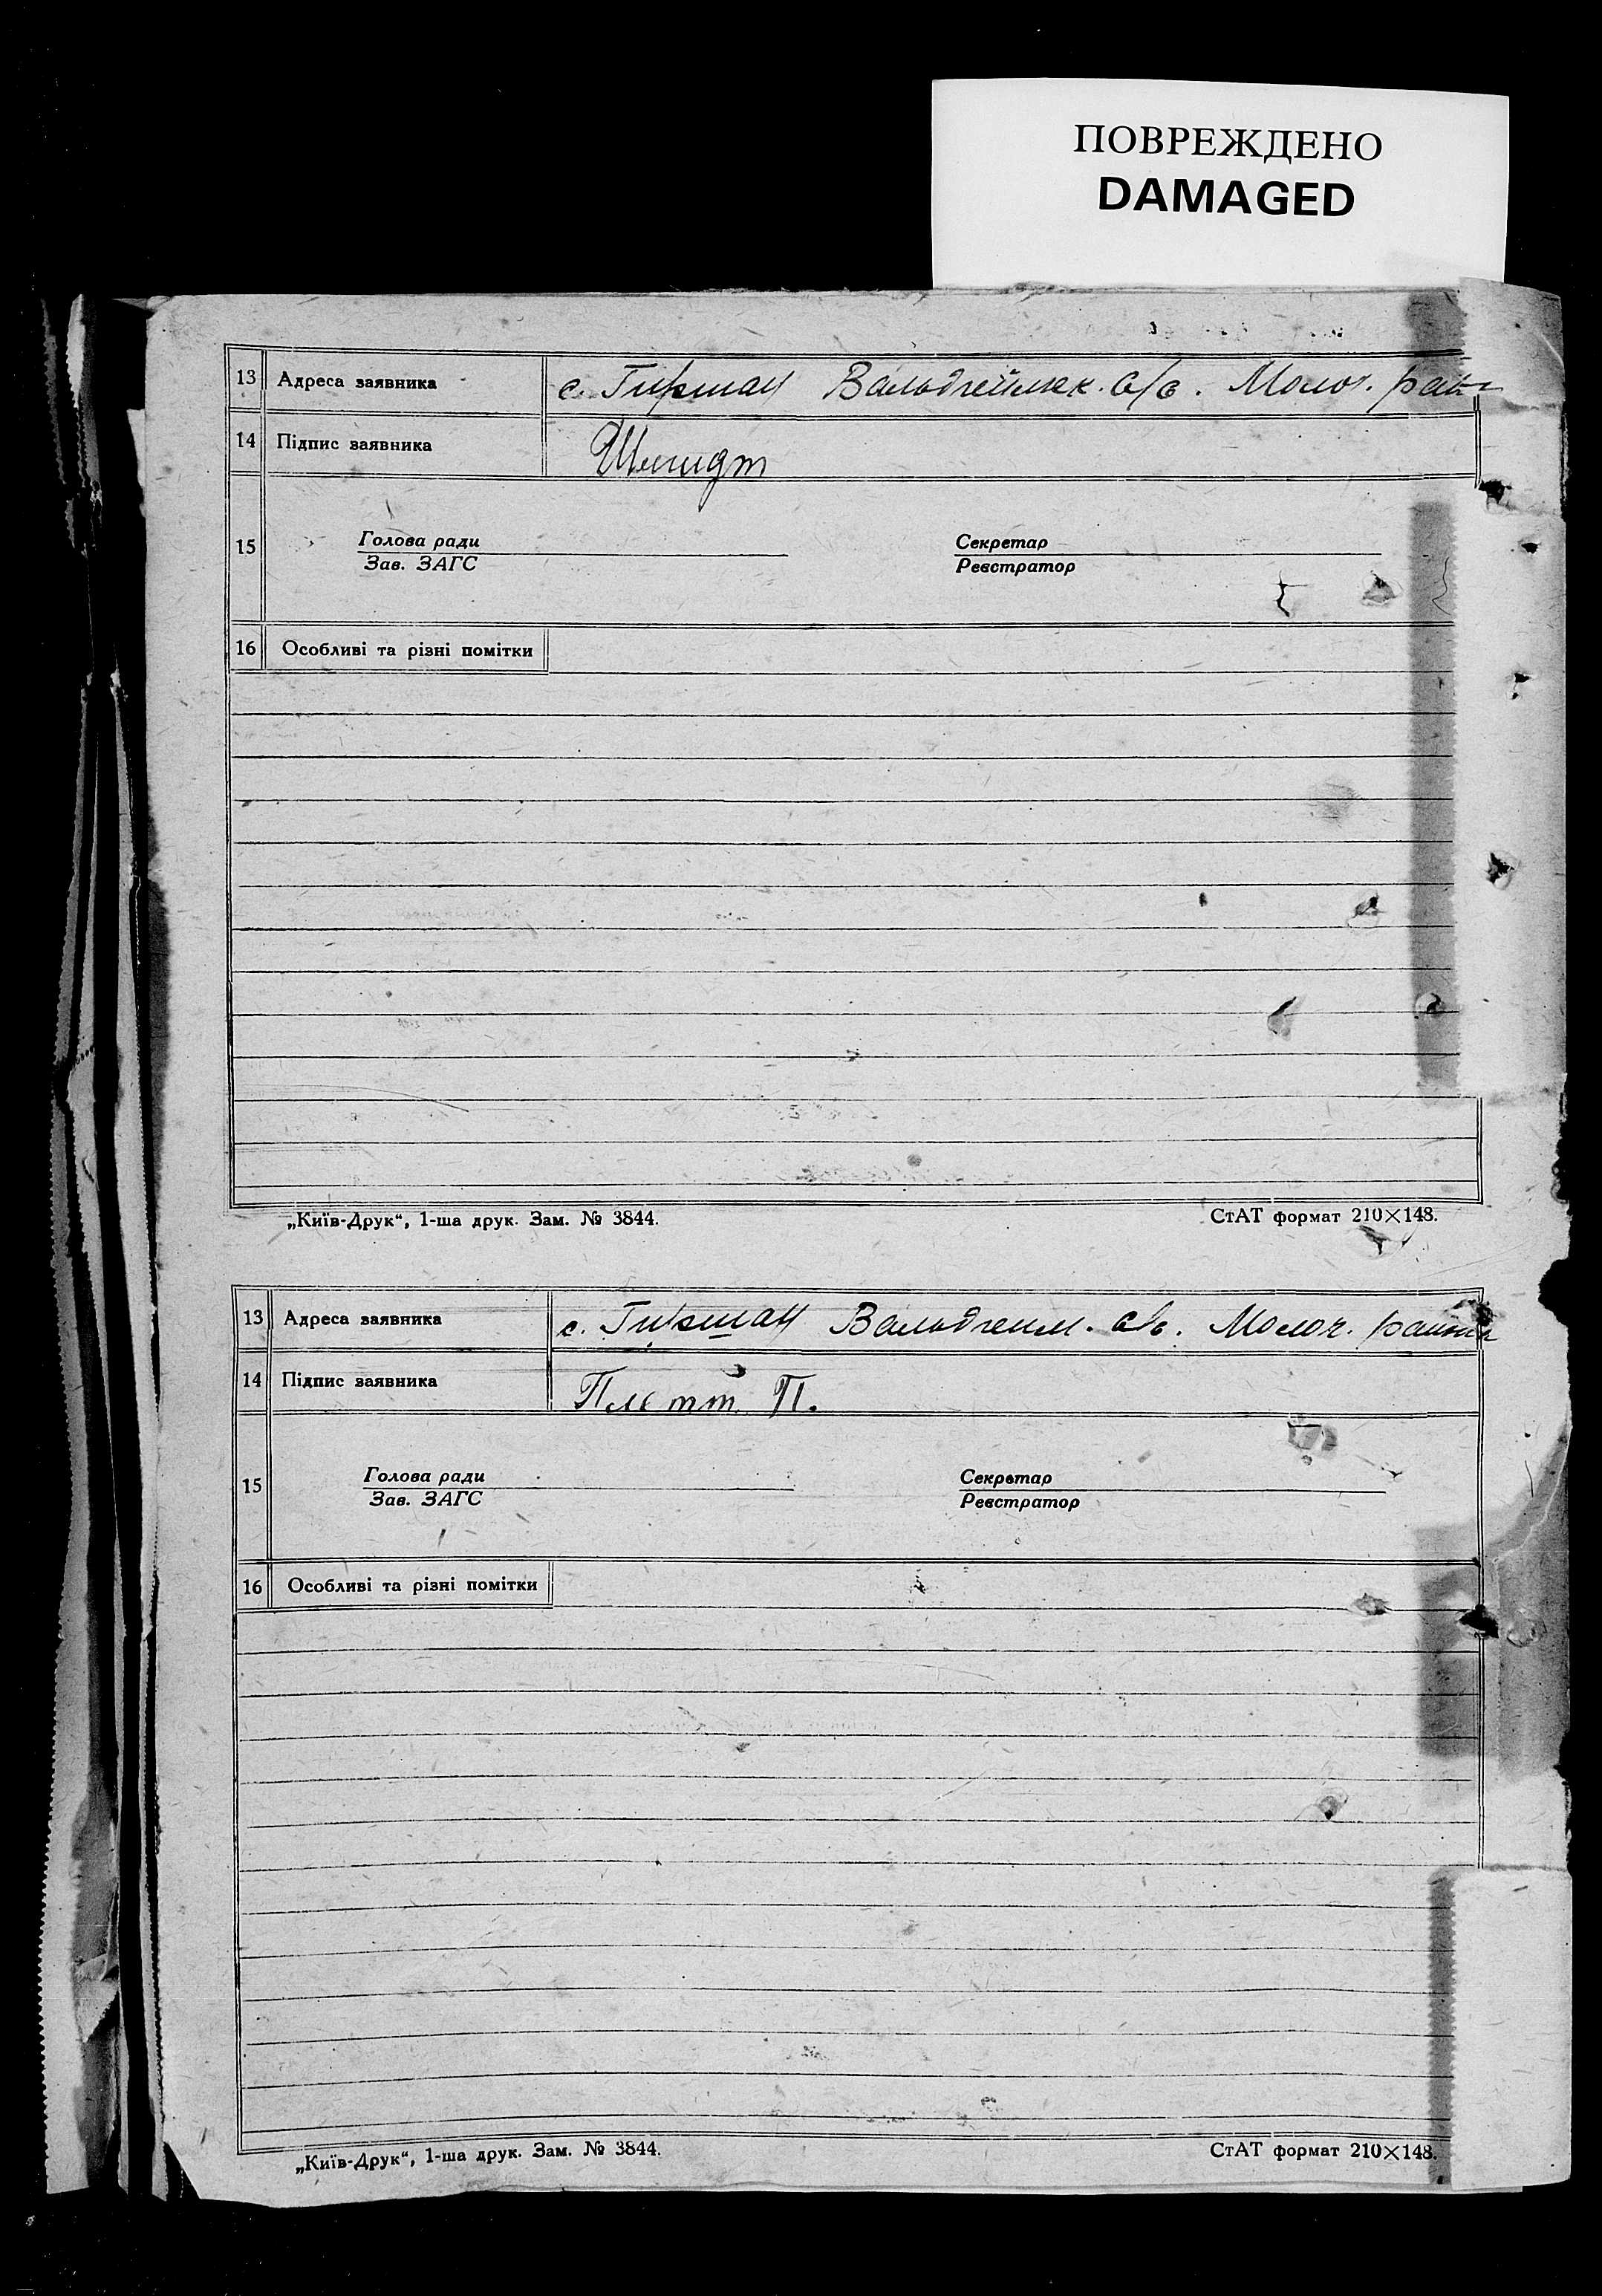 ПОВРЕЖДЕНО
DAMAGED
13 Адреса заявника с. Гиршац Вальдгеймск. с/с. Молоч. район
14 Підпис заявника Шмидт
15 Голова ради Секретар
Зав. ЗАГС Реєстратор
16 Особливі та різні помітки
„Київ-Друк“, 1-ша друк. Зам. № 3844. СтАТ формат 210×148.
13 Адреса заявника с. Гиршац Вальдгейм. с/с. Молоч. району
14 Підпис заявника Плетт П.
15 Голова ради Секретар
Зав. ЗАГС Реєстратор
16 Особливі та різні помітки
„Київ-Друк“, 1-ша друк. Зам. № 3844. СтАТ формат 210×148.